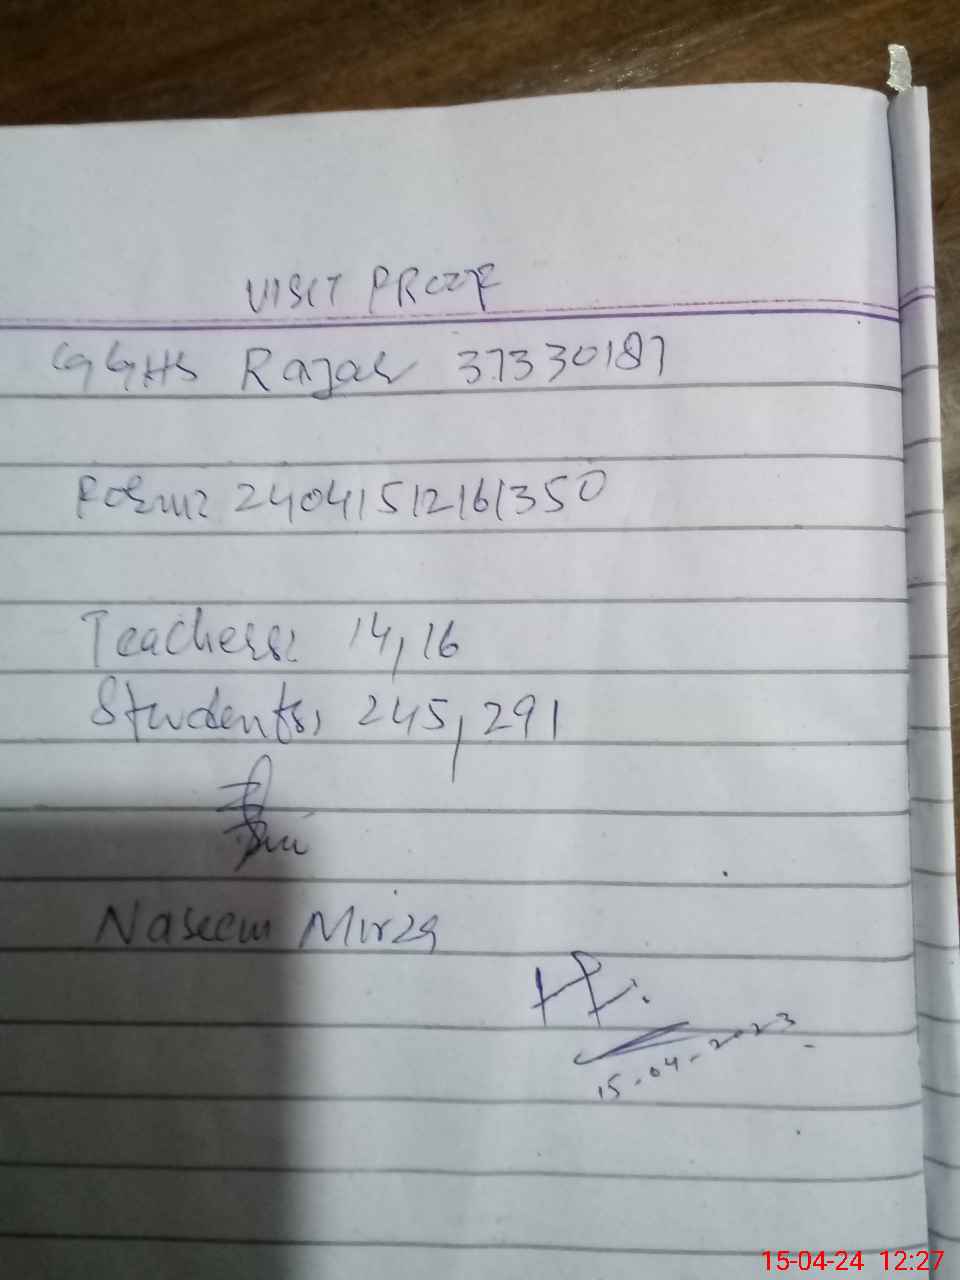 VISIT PROOF
GGHS Rajar 37330187
Form: 24041512161350
Teachers: 14,16
Students, 245,291
Naseem Mirza
15-04-2023
15-04-24 12:27